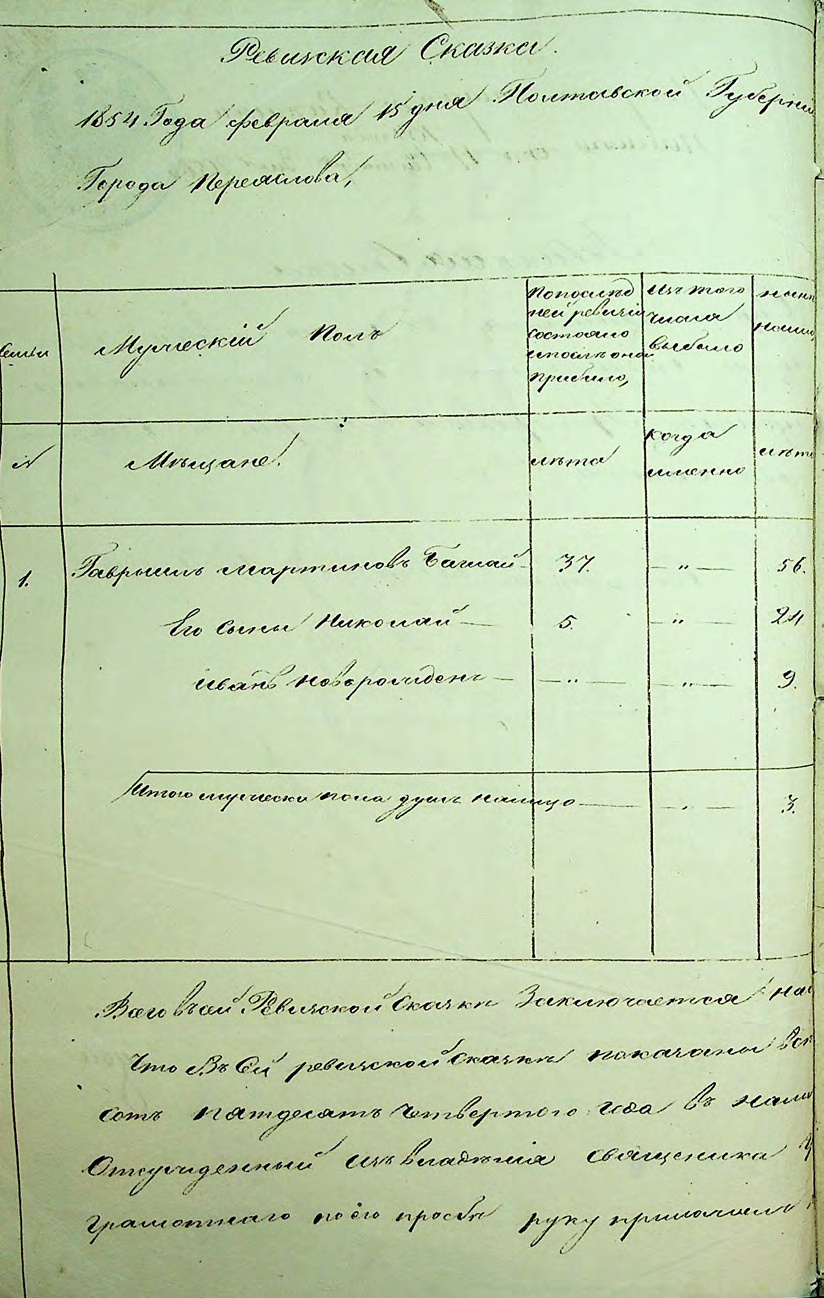 Ревизская Сказка.
1854 Года февраля 15 дня Полтавской Губерни
Города Переяслова,
Семьи
Мужескій Полъ
Попослѣд
ней ревизіи
состояло
ипослѣ оной
прибыло,
Изъ того
числа
выбыло
нынѣ
налицо
№
Мѣщане.
лѣта
когда
именно
лѣта
1. Гаврыилъ Мартиновъ 37. — " — 56.
Его Сыны Николай — 5. — " — 24
Иванъ новорожденъ — — " — — " — 9.
Итого мужеска пола душъ налицо — — " — 3.
Всего въсей Ревизской Сказки Заключается на
Что Въ Сей ревизской сказкѣ показаны
сотъ пятдесятъ четвертого года въ нали
Отсужденный изъ владѣнія священика
грамотнаго по его прозбѣ руку приложилъ